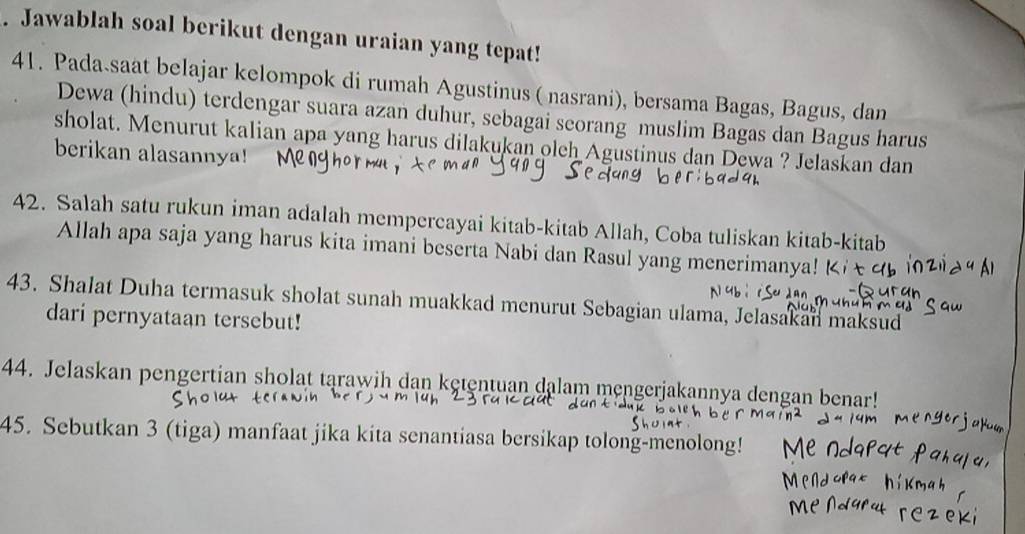 . Jawablah soal berikut dengan uraian yang tepat!
41. Pada saat belajar kelompok di rumah Agustinus ( nasrani), bersama Bagas, Bagus, dan
Dewa (hindu) terdengar suara azan duhur, sebagai seorang muslim Bagas dan Bagus harus
sholat. Menurut kalian apa yang harus dilakukan oleh Agustinus dan Dewa ? Jelaskan dan
berikan alasannya! Menghormati teman yang sedang beribadah
42. Salah satu rukun iman adalah mempercayai kitab-kitab Allah, Coba tuliskan kitab-kitab
Allah apa saja yang harus kita imani beserta Nabi dan Rasul yang menerimanya! Kitab inzil da Al
-Quran
Nabi isa dan Nabi muhummad Saw
43. Shalat Duha termasuk sholat sunah muakkad menurut Sebagian ulama, Jelasakan maksud
dari pernyataan tersebut!
44. Jelaskan pengertian sholat tarawih dan ketentuan dalam mengerjakannya dengan benar!
Sholat terawih berjumlah 23 rakaat dan tidak boleh bermain2 dalam mengerjakan
Sholat.
45. Sebutkan 3 (tiga) manfaat jika kita senantiasa bersikap tolong-menolong! Mendapat pahala,
Mendapat hikmah,
Mendapat rezeki